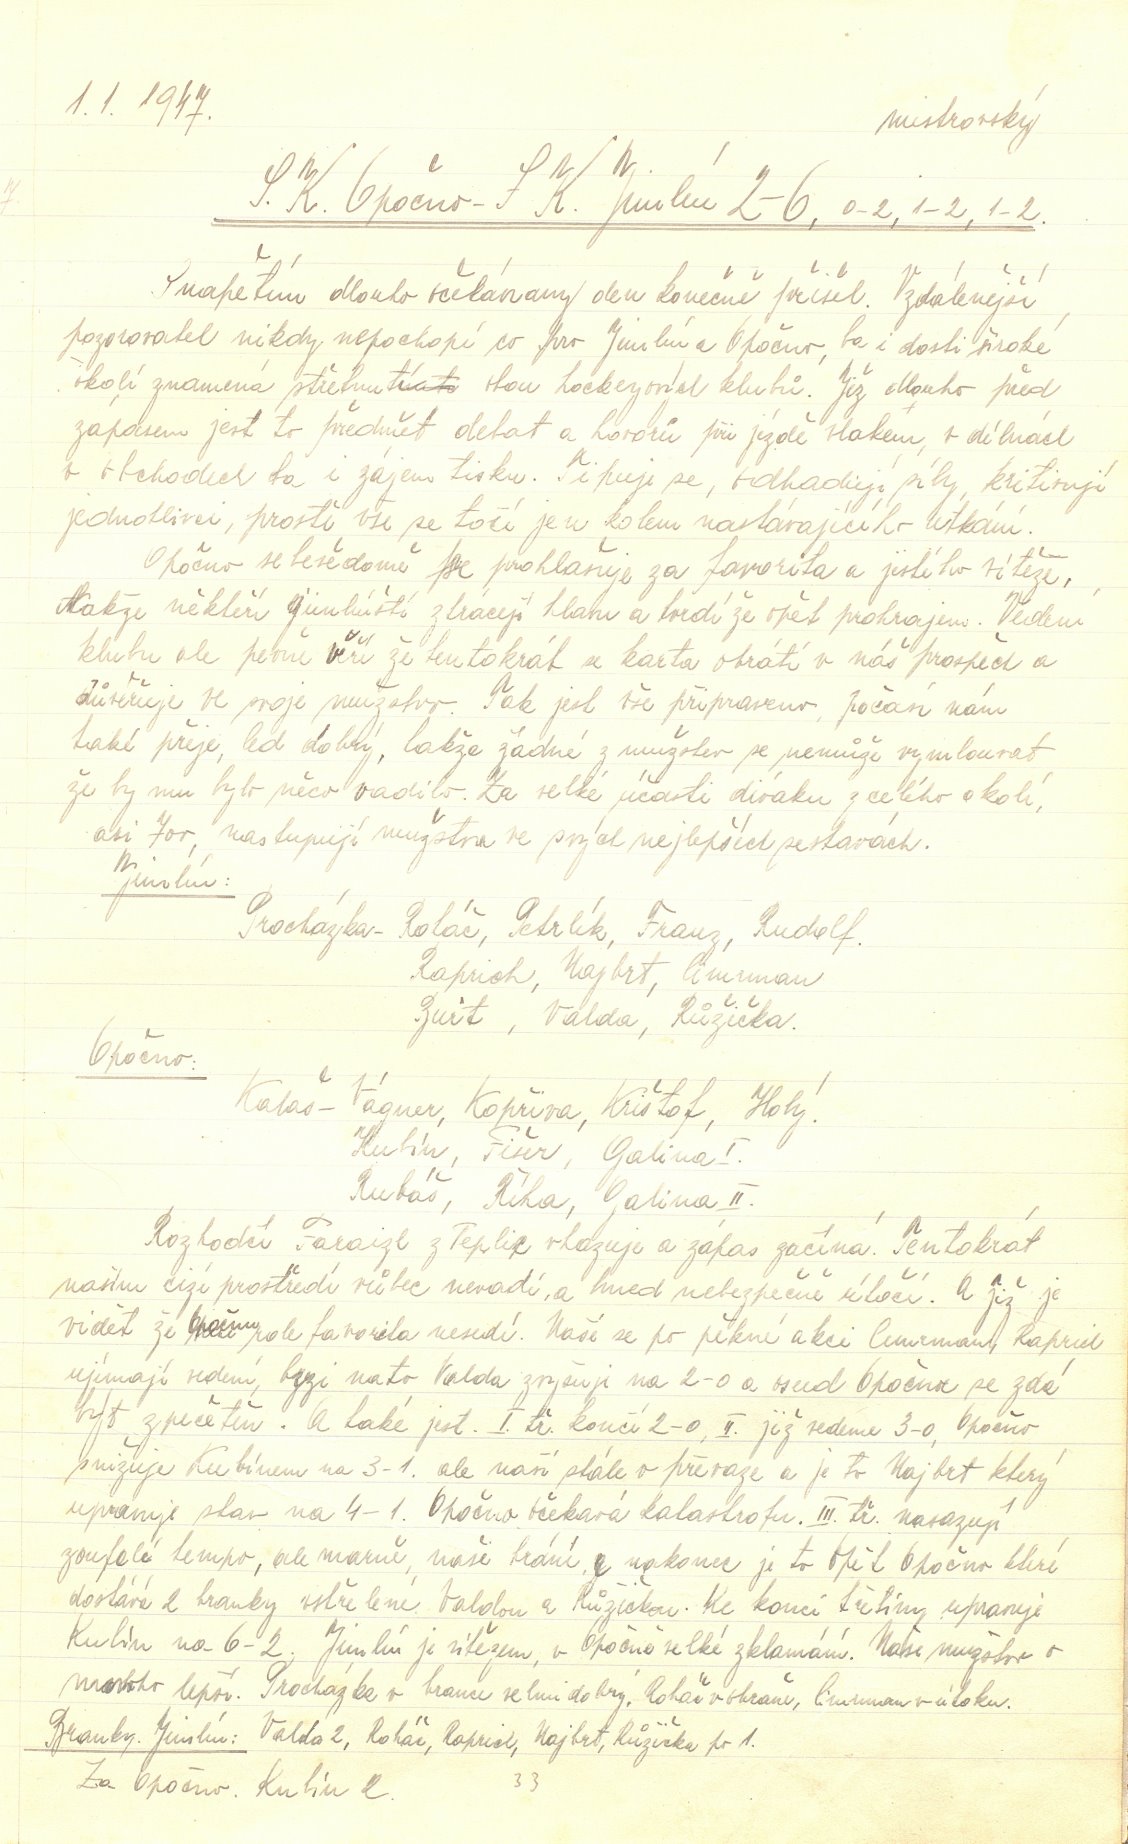 1.1. 1947.
mistrovský
7.
S.K. Opočno - S.K. Jimlín 2-6, 0-2, 1-2, 1-2.
S napětím dlouho očekávaný den konečně přišel. Vzdálenější
pozorovatel nikdy nepochopí co pro Jimlín a Opočno, ba i dosti široké
okolí znamená střetnutí obou hockeyových klubů. Již dlouho před
zápasem jest to předmět debat a hovorů při jízdě vlakem, v dílnách
v obchodech ba i zájem tisku. Tipuje se, odhadují síly, kritisují
jednotlivci, prostě vše se točí jen kolem nastávajícího utkání.
Opočno sebevědomě se prohlašuje za favorita a jistého vítěze,
takže někteří Jimlínští ztrácejí hlavu a tvrdí že opět prohrajem. Vedení
klubu ale pevně věří že tentokrát se karta obrátí v náš prospěch a
důvěřuje ve svoje mužstvo. Tak jest vše připraveno, počasí nám
také přeje, led dobrý, takže žádné z mužstev se nemůže vymlouvat
že by mu bylo něco vadilo. Za velké účasti diváku z celého okolí,
asi 700, nastupují mužstva ve svých nejlepších sestavách.
Jimlín:
Procházka - Roháč, Petrlík, Franz, Rudolf.
Raprich, Najbrt, Cimrman
Burt, Valda, Růžička.
Opočno:
Kalaš - Vágner, Kopřiva, Krištof, Holý.
Kubín, Fišer, Galina I.
Rubáš, Říha, Galina II.
Rozhodčí Faraizl z Teplic vhazuje a zápas začíná. Tentokrát
našim cizí prostředí vůbec nevadí, a hned nebezpečně útočí. A již je
vidět že Opočnu role favorita nesedí. Naši se po pěkné akci Cimrman, Raprich
ujímají vedení, brzi nato Valda zvyšuje na 2-0 a osud Opočna se zdá
být zpečetěn. A také jest. I. tř. končí 2-0, II. již vedeme 3-0, Opočno
snižuje Kubínem na 3-1. ale naši stále v převaze a je to Najbrt který
upravuje stav na 4-1. Opočno očekává katastrofu. III. tř. nasazují
zoufalé tempo, ale marně, naši brání, a nakonec je to opět Opočno které
dostává 2 branky vstřelené Valdou a Růžičkou. Ke konci třetiny upravuje
Kubín na 6-2. Jimlín je vítězem, v Opočně velké zklamání. Naše mužstvo o
mnoho lepší. Procházka v brance velmi dobrý, Roháč v obraně, Cimrman v útoku.
Branky. Jimlín: Valda 2, Roháč, Raprich, Najbrt, Růžička po 1.
Za Opočno. Kubín 2.
33